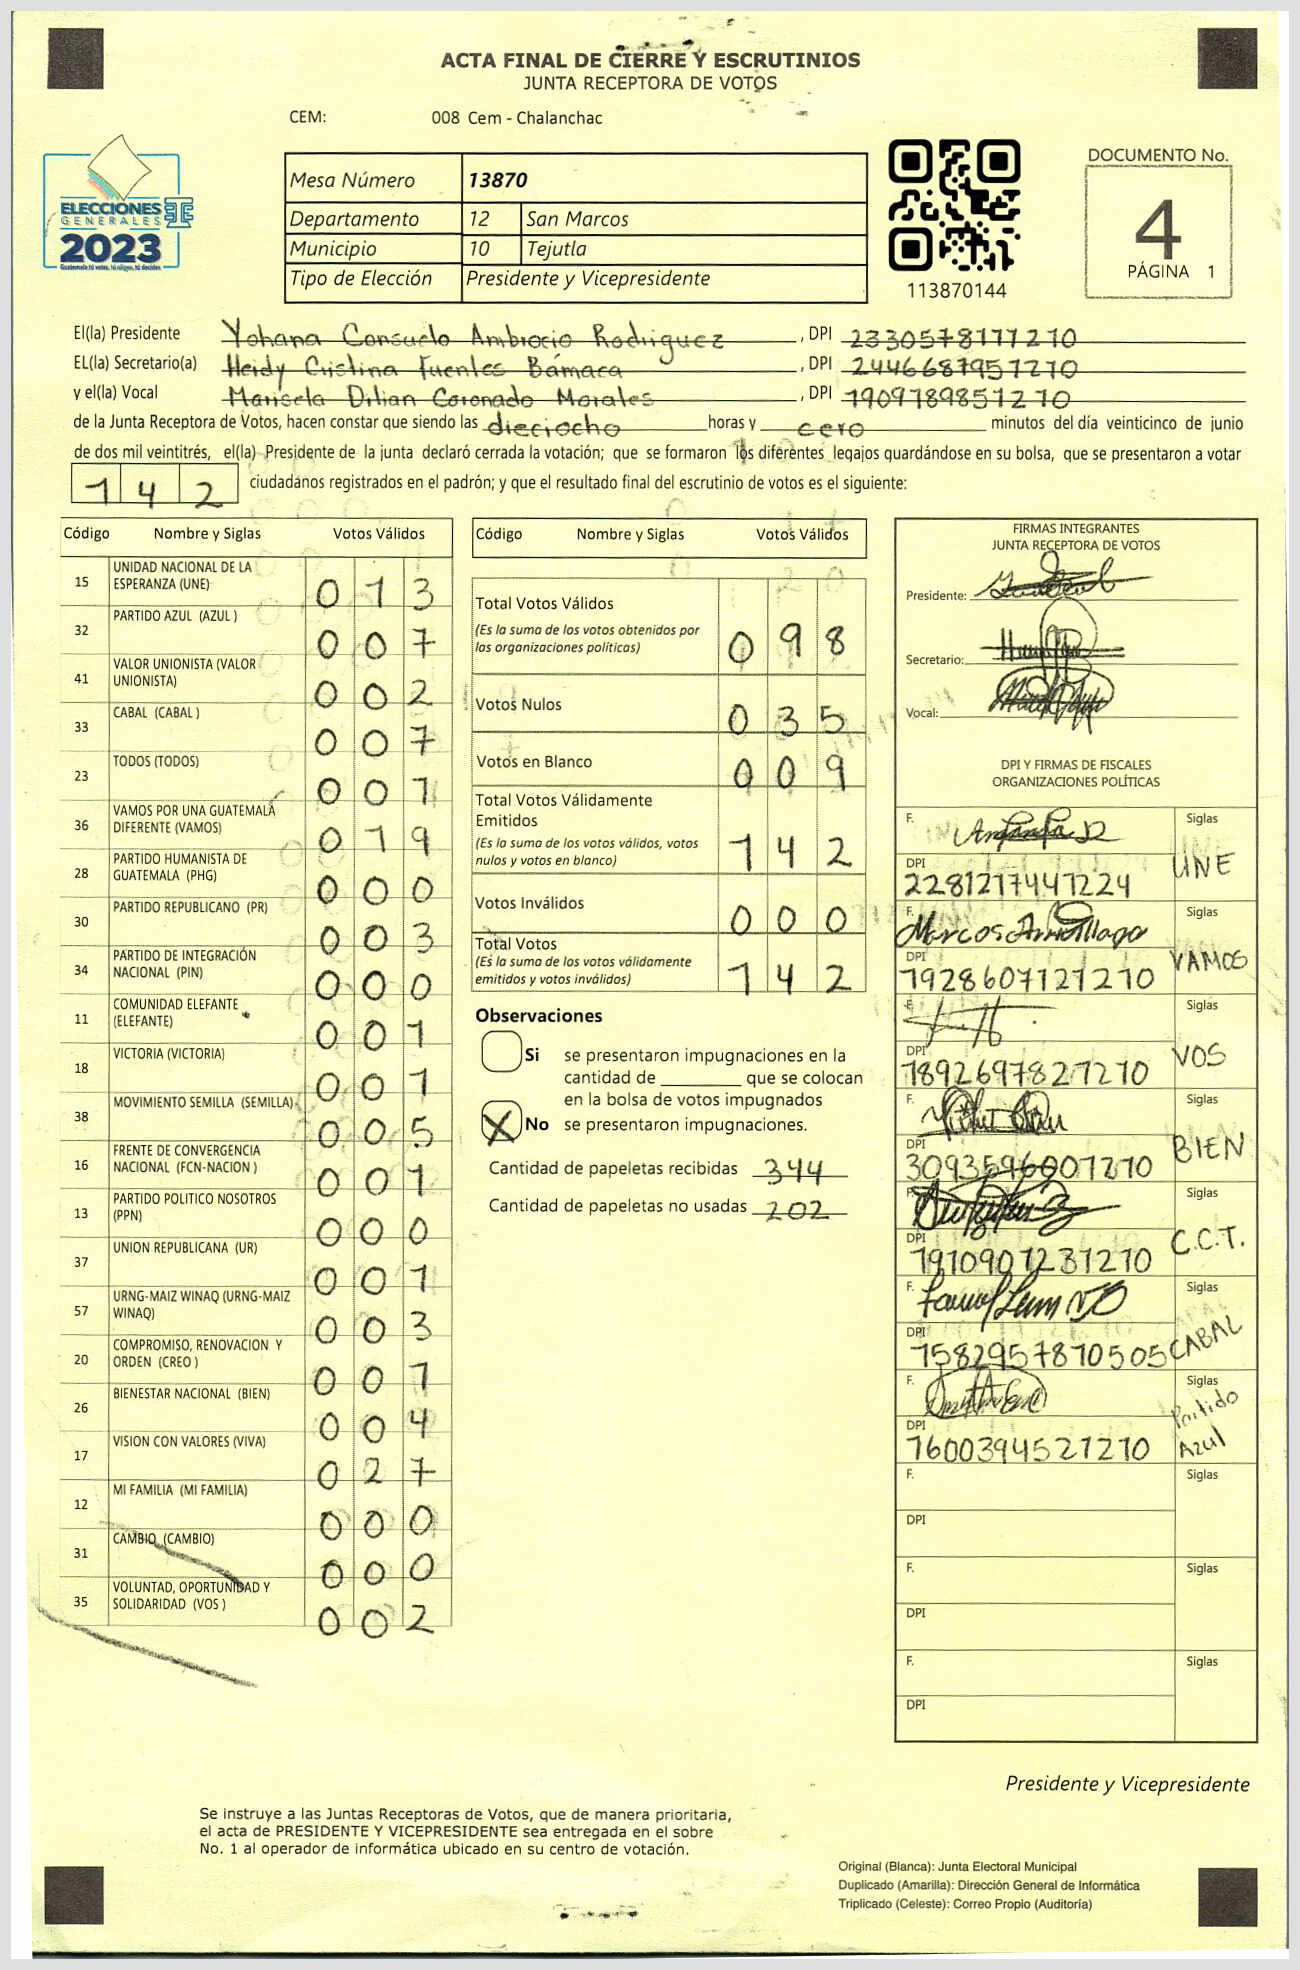 ACTA FINAL DE CIERRE Y ESCRUTINIOS
JUNTA RECEPTORA DE VOTOS
CEM: 008 Cem - Chalanchac
ELECCIONES
GENERALES
2023
Guatemala tú votas, tú eliges, tú decides
Mesa Número 13870
Departamento 12 San Marcos
Municipio 10 Tejutla
Tipo de Elección Presidente y Vicepresidente
113870144
DOCUMENTO No.
4
PÁGINA 1
El(la) Presidente Yohana Consuelo Ambrocio Rodriguez, DPI 2330578171210
EL(la) Secretario(a) Heidy Cristina Fuentes Bámaca, DPI 2446687951210
y el(la) Vocal Marisela Dilian Coronado Morales, DPI 1909789851210
de la Junta Receptora de Votos, hacen constar que siendo las dieciocho horas y cero minutos del día veinticinco de junio
de dos mil veintitrés, el(la) Presidente de la junta declaró cerrada la votación; que se formaron los diferentes legajos guardándose en su bolsa, que se presentaron a votar
142 ciudadanos registrados en el padrón; y que el resultado final del escrutinio de votos es el siguiente:
Código Nombre y Siglas Votos Válidos
15 UNIDAD NACIONAL DE LA ESPERANZA (UNE) 013
32 PARTIDO AZUL (AZUL ) 007
41 VALOR UNIONISTA (VALOR UNIONISTA) 002
33 CABAL (CABAL ) 007
23 TODOS (TODOS) 001
36 VAMOS POR UNA GUATEMALA DIFERENTE (VAMOS) 019
28 PARTIDO HUMANISTA DE GUATEMALA (PHG) 000
30 PARTIDO REPUBLICANO (PR) 003
34 PARTIDO DE INTEGRACIÓN NACIONAL (PIN) 000
11 COMUNIDAD ELEFANTE (ELEFANTE) 001
18 VICTORIA (VICTORIA) 001
38 MOVIMIENTO SEMILLA (SEMILLA) 005
16 FRENTE DE CONVERGENCIA NACIONAL (FCN-NACION ) 001
13 PARTIDO POLITICO NOSOTROS (PPN) 000
37 UNION REPUBLICANA (UR) 001
57 URNG-MAIZ WINAQ (URNG-MAIZ WINAQ) 003
20 COMPROMISO, RENOVACION Y ORDEN (CREO ) 001
26 BIENESTAR NACIONAL (BIEN) 004
17 VISION CON VALORES (VIVA) 027
12 MI FAMILIA (MI FAMILIA) 000
31 CAMBIO (CAMBIO) 000
35 VOLUNTAD, OPORTUNIDAD Y SOLIDARIDAD (VOS ) 002
Código Nombre y Siglas Votos Válidos
Total Votos Válidos
(Es la suma de los votos obtenidos por las organizaciones políticas) 098
Votos Nulos 035
Votos en Blanco 009
Total Votos Válidamente Emitidos
(Es la suma de los votos válidos, votos nulos y votos en blanco) 142
Votos Inválidos 000
Total Votos
(Es la suma de los votos válidamente emitidos y votos inválidos) 142
Observaciones
Si se presentaron impugnaciones en la
cantidad de ________ que se colocan
en la bolsa de votos impugnados
X No se presentaron impugnaciones.
Cantidad de papeletas recibidas 344
Cantidad de papeletas no usadas 202
FIRMAS INTEGRANTES
JUNTA RECEPTORA DE VOTOS
Presidente:
Secretario:
Vocal:
DPI Y FIRMAS DE FISCALES
ORGANIZACIONES POLÍTICAS
F. Siglas
DPI 2281217441224 UNE
F. Marcos Siglas
DPI 1928607121210 VAMOS
F. Siglas
DPI 1892697821210 VOS
F. Siglas
DPI 3093596001210 BIEN
F. Siglas
DPI 1910901231210 C.C.T.
F. Siglas
DPI 1582957870505 CABAL
F. Siglas
DPI 1600394521210 Partido Azul
F. Siglas
DPI
F. Siglas
DPI
F. Siglas
DPI
Presidente y Vicepresidente
Se instruye a las Juntas Receptoras de Votos, que de manera prioritaria,
el acta de PRESIDENTE Y VICEPRESIDENTE sea entregada en el sobre
No. 1 al operador de informática ubicado en su centro de votación.
Original (Blanca): Junta Electoral Municipal
Duplicado (Amarilla): Dirección General de Informática
Triplicado (Celeste): Correo Propio (Auditoría)